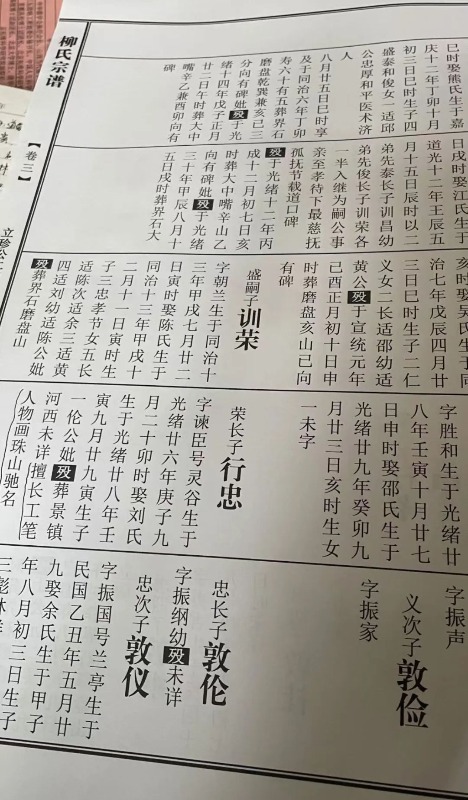 柳氏宗谱
【卷三】
立珍公
巳时娶熊氏生于嘉
庆十二年丁卯十月
初三日巳时生子四
盛泰和俊女二适邱
公忠厚和平医术济
人
八月廿五日巳时享
及于同治六年丁卯
寿六十有五葬界石
磨盘乾巽兼亥巳三
分向有碑妣殁于光
绪十四年戊子正月
廿二日午时葬大中
嘴辛乙兼酉卯向有
碑
日戌时娶汪氏生于
道光十二年壬辰五
月十五日辰时以二
弟先泰长子训昌幼
弟先俊长子训荣各
一半入继为嗣公事
亲至孝待下最慈抚
孤抚节载道口碑
殁于光绪十二年丙
成十二月初七日亥
时葬大中嘴辛山乙
向有碑妣殁于光绪
三十年甲辰八月十
五日戌时葬界石大
亥时娶吴氏生于
治七年戊辰四月廿
三日巳时生子二仁
义女二长适邵幼适
黄公殁于宣统元年
己酉正月初十日申
时葬磨盘亥山己向
有碑
盛嗣子训荣
字朝兰生于同治十
三年甲戌七月廿二
日寅时娶陈氏生于
同治十三年甲戌十
二月十一日寅时生
子三忠孝节女五长
适陈次适余三适黄
四适刘幼适陈公妣
殁葬界石磨盘山
字胜和生于光绪廿
八年壬寅十月廿七
日申时娶邵氏生于
光绪廿九年癸卯九
月廿三日亥时生女
一未字
荣长子行忠
字谏臣号灵谷生于
光绪廿六年庚子九
月二十卯时娶刘氏
生于光绪廿八年壬
寅九月廿九寅生子
一伦公妣殁葬景镇
河西未详擅长工笔
人物画珠山驰名
字振声
义次子敦俭
字振家
忠长子敦伦
字振纲幼殁未详
忠次子敦仪
字振国号兰亭生于
民国乙丑年五月廿
九娶余氏生于甲子
年八月初三日生子
三彪林